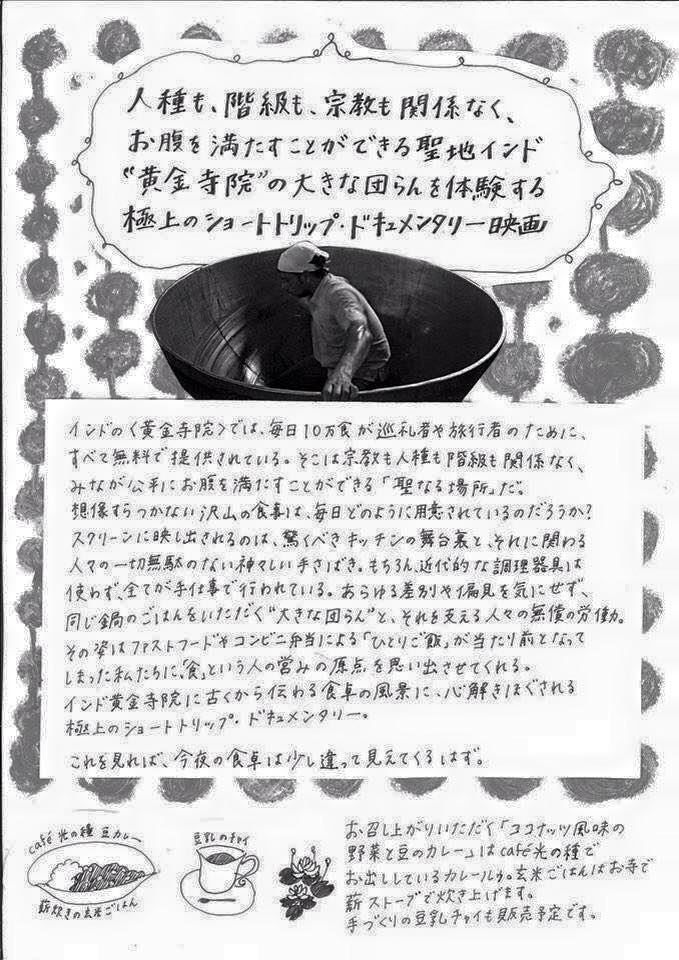 人種も、階級も、宗教も関係なく、
お腹を満たすことができる聖地インド
“黄金寺院”の大きな団らんを体験する
極上のショートトリップ・ドキュメンタリー映画
インドの〈黄金寺院〉では、毎日10万食が巡礼者や旅行者のために、
すべて無料で提供されている。そこは宗教も人種も階級も関係なく、
みなが公平にお腹を満たすことができる「聖なる場所」だ。
想像すらつかない沢山の食事は、毎日どのように用意されているのだろうか?
スクリーンに映し出されるのは、驚くべきキッチンの舞台裏と、それに関わる
人々の一切無駄のない神々しい手さばき。もちろん、近代的な調理器具は
使わず、全てが手仕事で行われている。あらゆる差別や偏見を気にせず、
同じ鍋のごはんをいただく“大きな団らん”と、それを支える人々の無償の労働力。
その姿はファストフードやコンビニ弁当による「ひとりご飯」が当たり前となって
しまった私たちに、「食」という人の営みの原点を思い出させてくれる。
インド黄金寺院に古くから伝わる食卓の風景に、心解きほぐされる
極上のショートトリップ・ドキュメンタリー。
これを見れば、今夜の食卓は少し違って見えてくるはず。
café 光の種 豆カレー
薪炊きの玄米ごはん
豆乳のチャイ
お召し上がりいただく「ココナッツ風味の
野菜と豆のカレー」はcafé光の種で
お出ししているカレールゥ。玄米ごはんはお寺で
薪ストーブで炊き上げます。
手づくりの豆乳チャイも販売予定です。